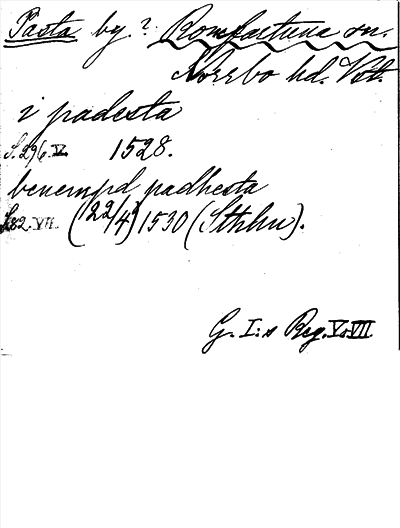 Pasta by? Romfartuna sn.
Norrbo hd. Vstm.
i padesta
S. 296. V. 1528.
benempd padhesta
S. 82. VII. (22/4) 1530 (Sthlm).
G. I:s Reg. V. VII.